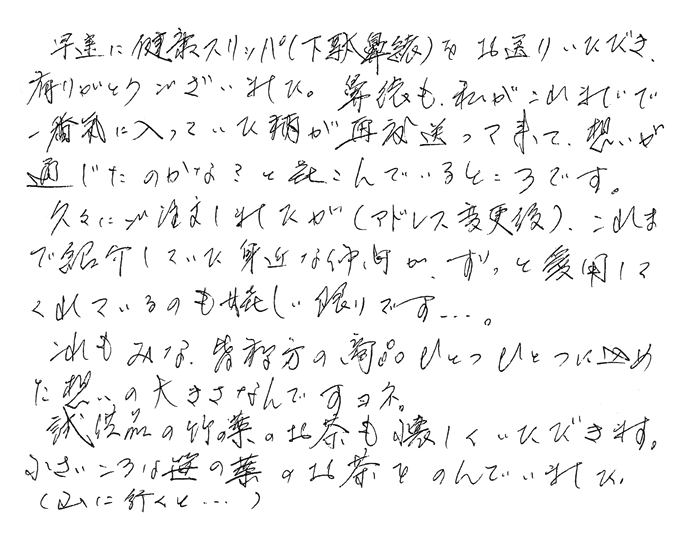 早速に健康スリッパ(下駄鼻緒)をお送りいただき、
有りがとうございました。鼻緒も、私がこれまでで
一番気に入っていた柄が再び送って来て、想いが
通じたのかな?と喜こんでいるところです。
久々にご注文しましたが(アドレス変更後)、これま
で紹介していた身近な仲間が、ずっと愛用して
くれているのも嬉しい限りです…。
これもみな、皆様方の商品ひとつひとつに込め
た想いの大きさなんですヨネ。
試供品の竹の葉のお茶も懐しくいただきます。
小さいころは笹の葉のお茶をのんでいました。
(山に行くと…)